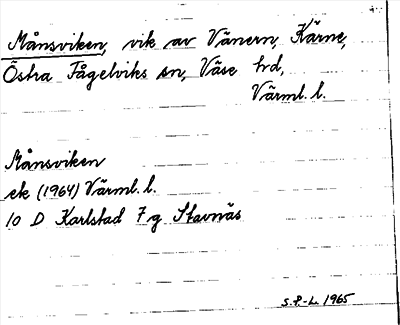 Månsviken, vik av Vänern, Kärne,
Östra Fågelviks sn, Väse hd,
Värml. l.
Månsviken
ek (1964) Värml. l.
10 D Karlstad 7 g Stavnäs
S.P.-L. 1965